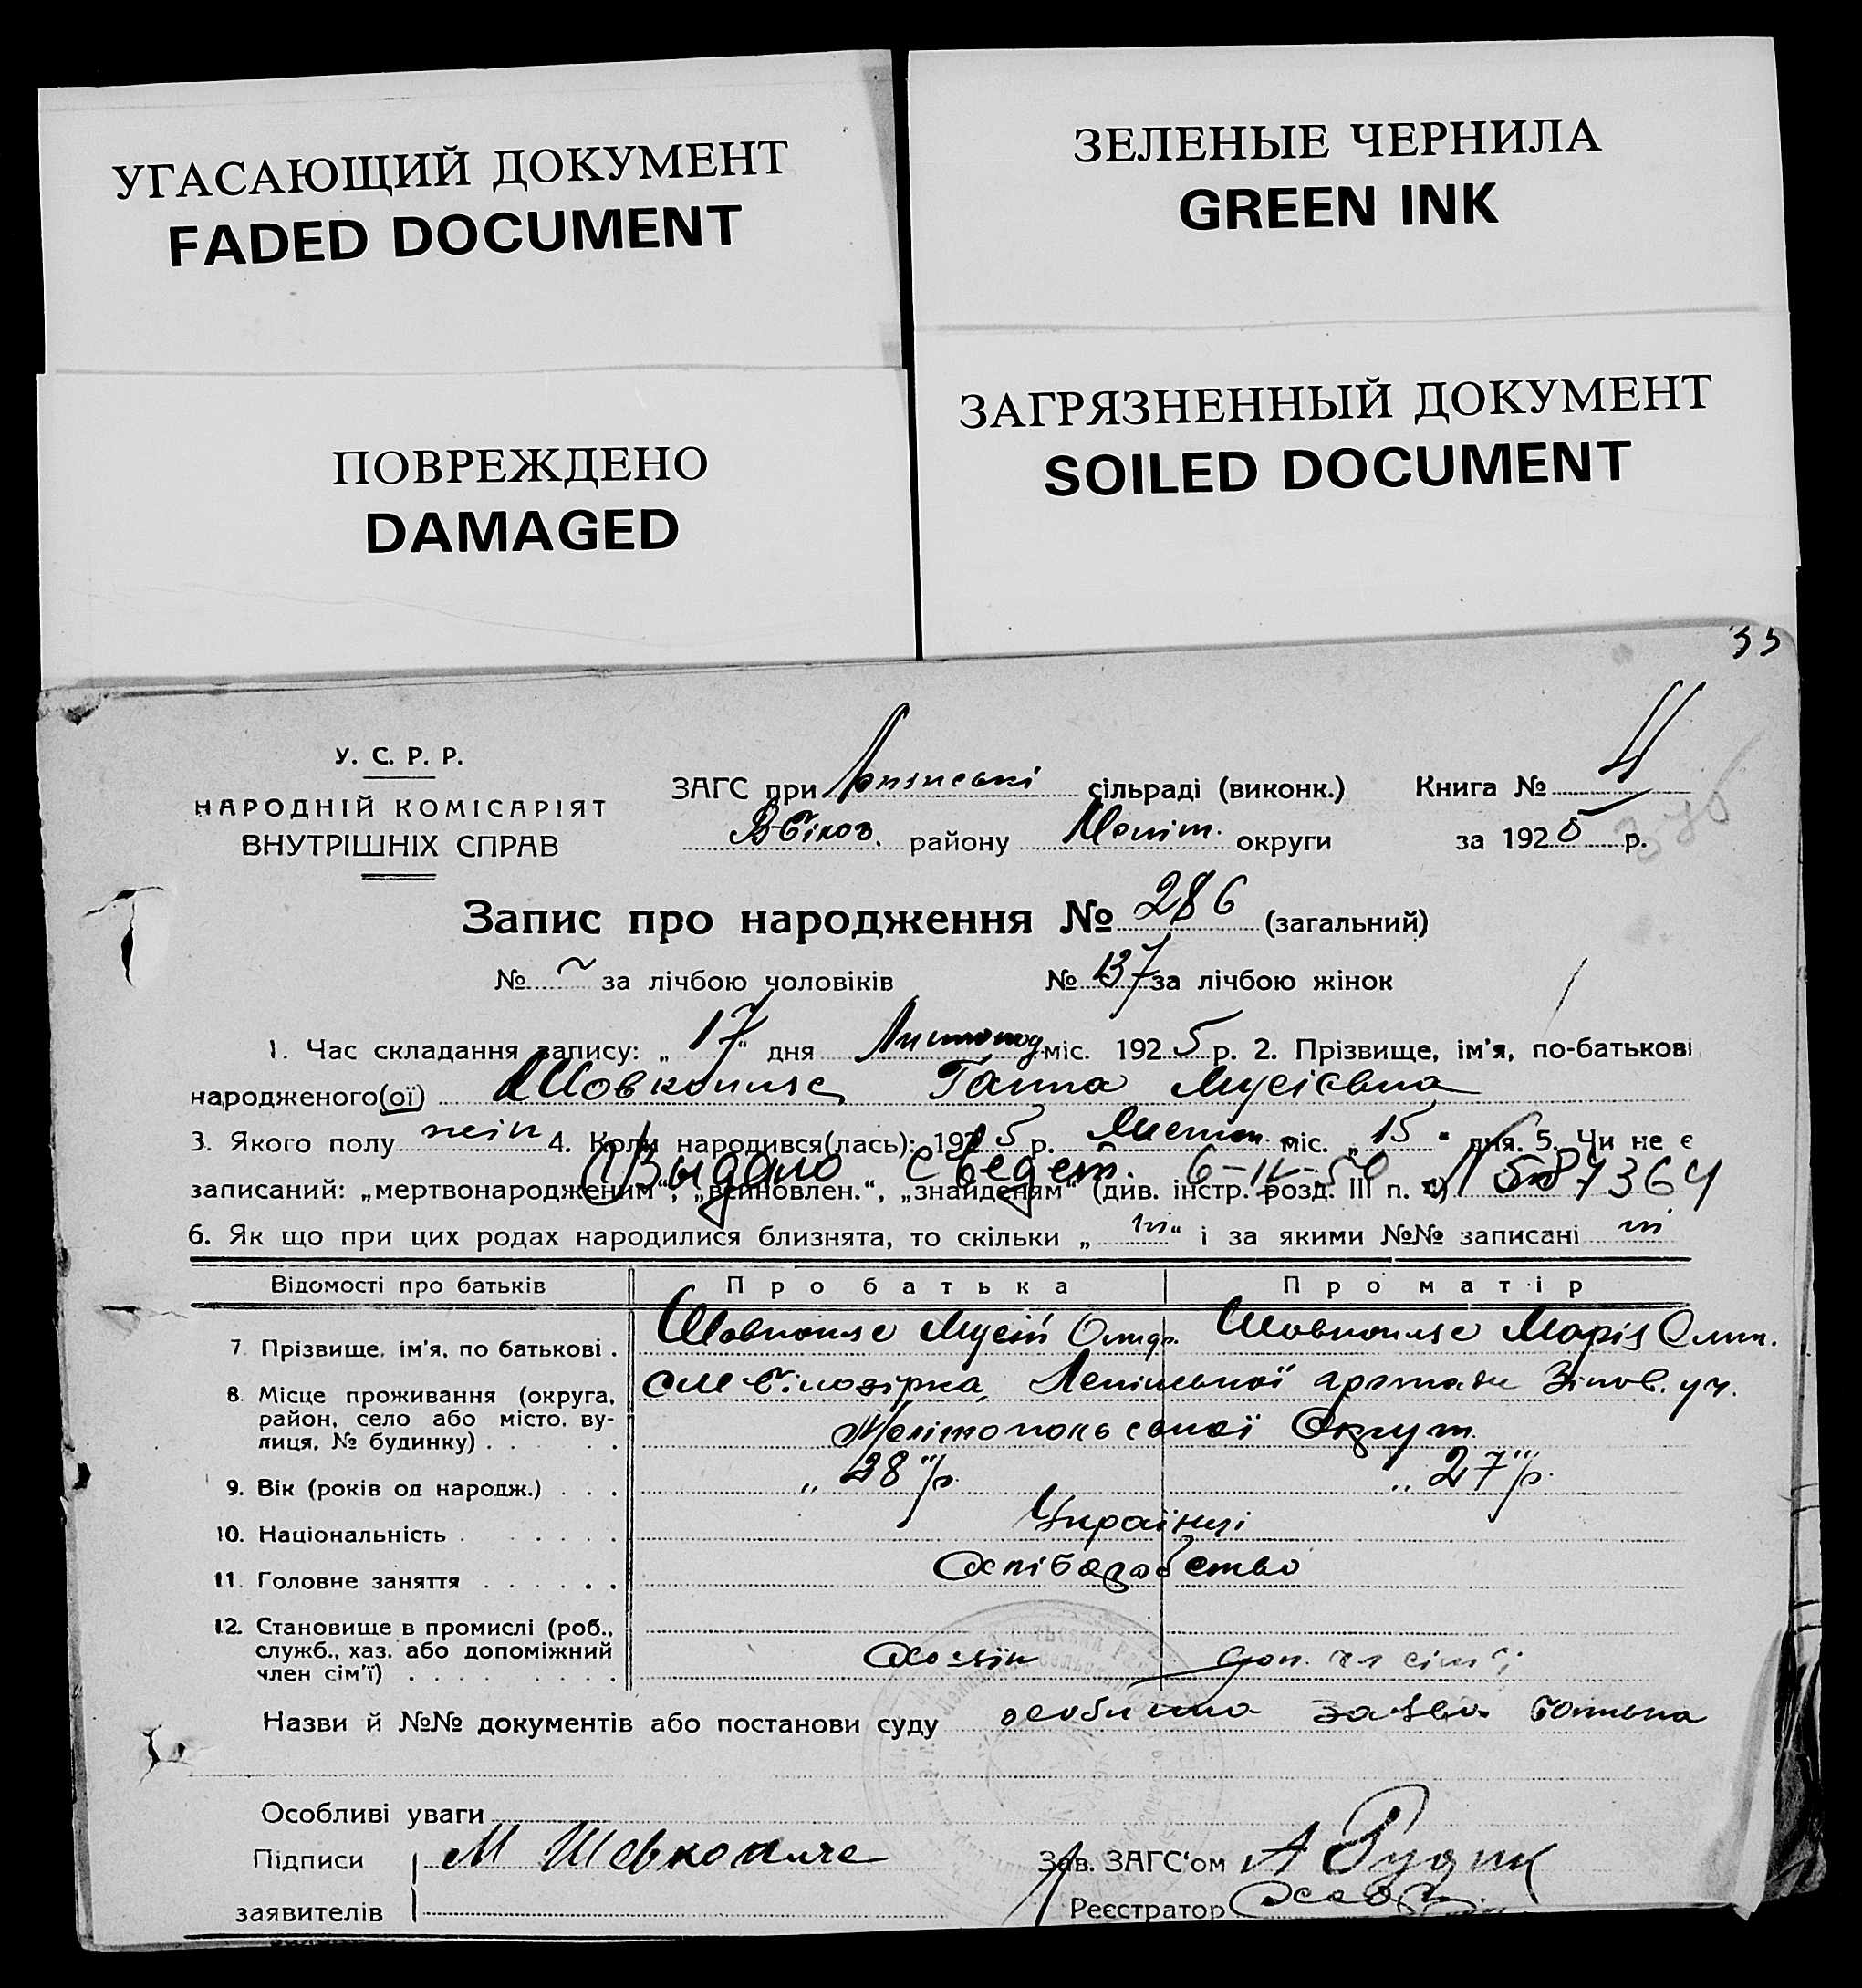 УГАСАЮЩИЙ ДОКУМЕНТ
FADED DOCUMENT
ЗЕЛЕНЫЕ ЧЕРНИЛА
GREEN INK
ПОВРЕЖДЕНО
DAMAGED
ЗАГРЯЗНЕННЫЙ ДОКУМЕНТ
SOILED DOCUMENT
35
У. С. Р. Р.
НАРОДНІЙ КОМІСАРІЯТ
ВНУТРІШНІХ СПРАВ
ЗАГС при сільраді (виконк.) Книга №
району Меліт. округи за 1925 р.
Запис про народження № 286 (загальний)
№ ~ за лічбою чоловіків № 137 за лічбою жінок
1. Час складання запису: „17“ дня Листопад міс. 1925 р. 2. Прізвище, ім'я, по-батькові
народженого(ої) Шовкопляс Ганна Мусієвна
3. Якого полу 4. Коли народився(лась): 1925 р. Листоп. міс. „15“ дня. 5. Чи не є
Выдано сведет. 6-IV-50 № 587364
записаний: „мертвонародженим“, „всиновлен.“, „знайденям“ (див. інстр. розд. III п. с)
6. Як що при цих родах народилися близнята, то скільки „ні“ і за якими №№ записані ні
Відомості про батьків Про батька Про матір
7. Прізвище, ім'я, по батькові . Шовкопляс Мусій Шовкопляс Марія
8. Місце проживання (округа, район, село або місто, вулиця, № будинку) . . . см Білозірка, Ленінської громади
Мелітопольської Округи
9. Вік (років од народж.) . . . „38“ р. „27“ р.
10. Національність . Українці
11. Головне заняття . . . . . . Хліборобство
12. Становище в промислі (роб.,
служб., хаз. або допоміжний
член сім'ї) . . . . . . . Хозяїн доп. чл сім'ї
Назви й №№ документів або постанови суду особиста заява батька
Особливі уваги
Підписи М Шевкопляс Зав. ЗАГС'ом А Рудик
заявителів Реєстратор